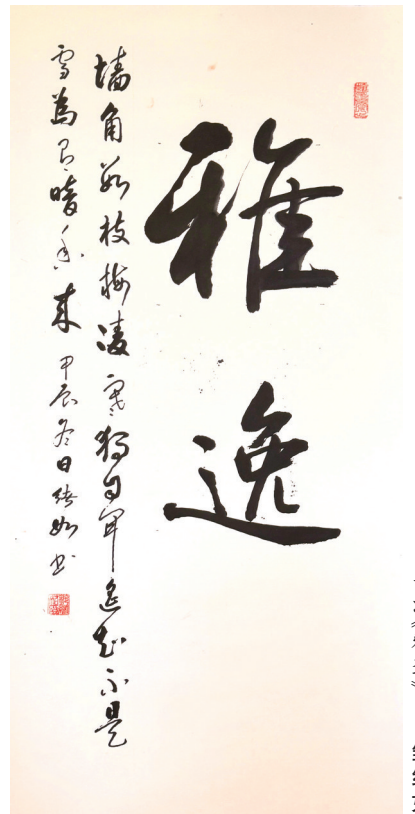 雅逸
墙角数枝梅凌寒独自开遥知不是
雪为有暗香来 甲辰冬日 如书